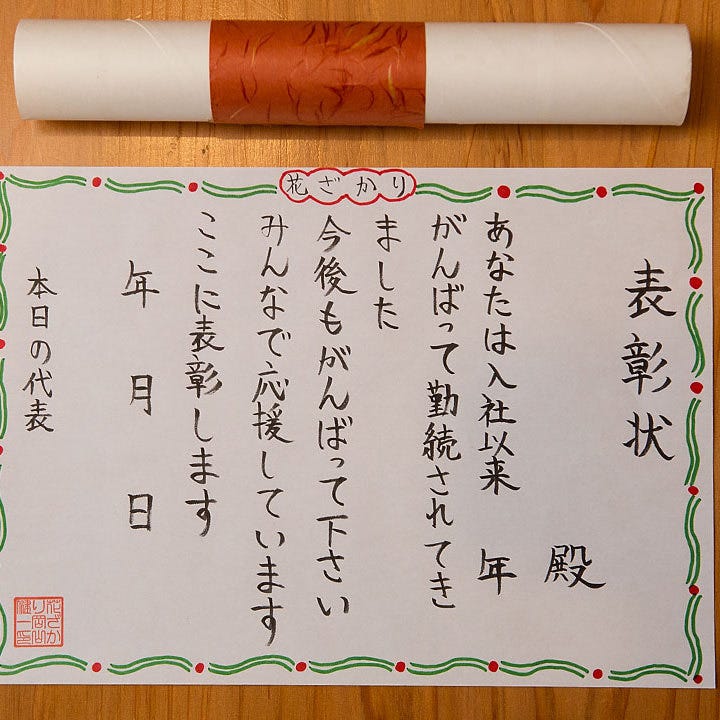 花ざかり
表彰状
殿
あなたは入社以来 年
がんばって勤続されてき
ました
今後もがんばって下さい
みんなで応援しています
ここに表彰します
年 月 日
本日の代表